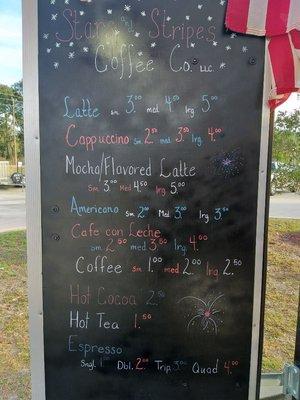 Stars and Stripes
Coffee Co. LLC.
Latte sm. 3.00 med 4.50 lrg. 5.00
Cappuccino sm. 2.50 med. 3.50 lrg. 4.00
Mocha/Flavored Latte
sm. 3.00 Med 4.50 lrg. 5.00
Americano sm. 2.00 Med. 3.00 lrg. 3.50
Cafe con Leche
sm. 2.50 med 3.50 lrg. 4.00
Coffee sm. 1.00 med 2.00 lrg. 2.50
Hot Cocoa 2.50
Hot Tea 1.50
Espresso
Sngl. 1.00 Dbl. 2.00 Trip 3.00 Quad 4.00